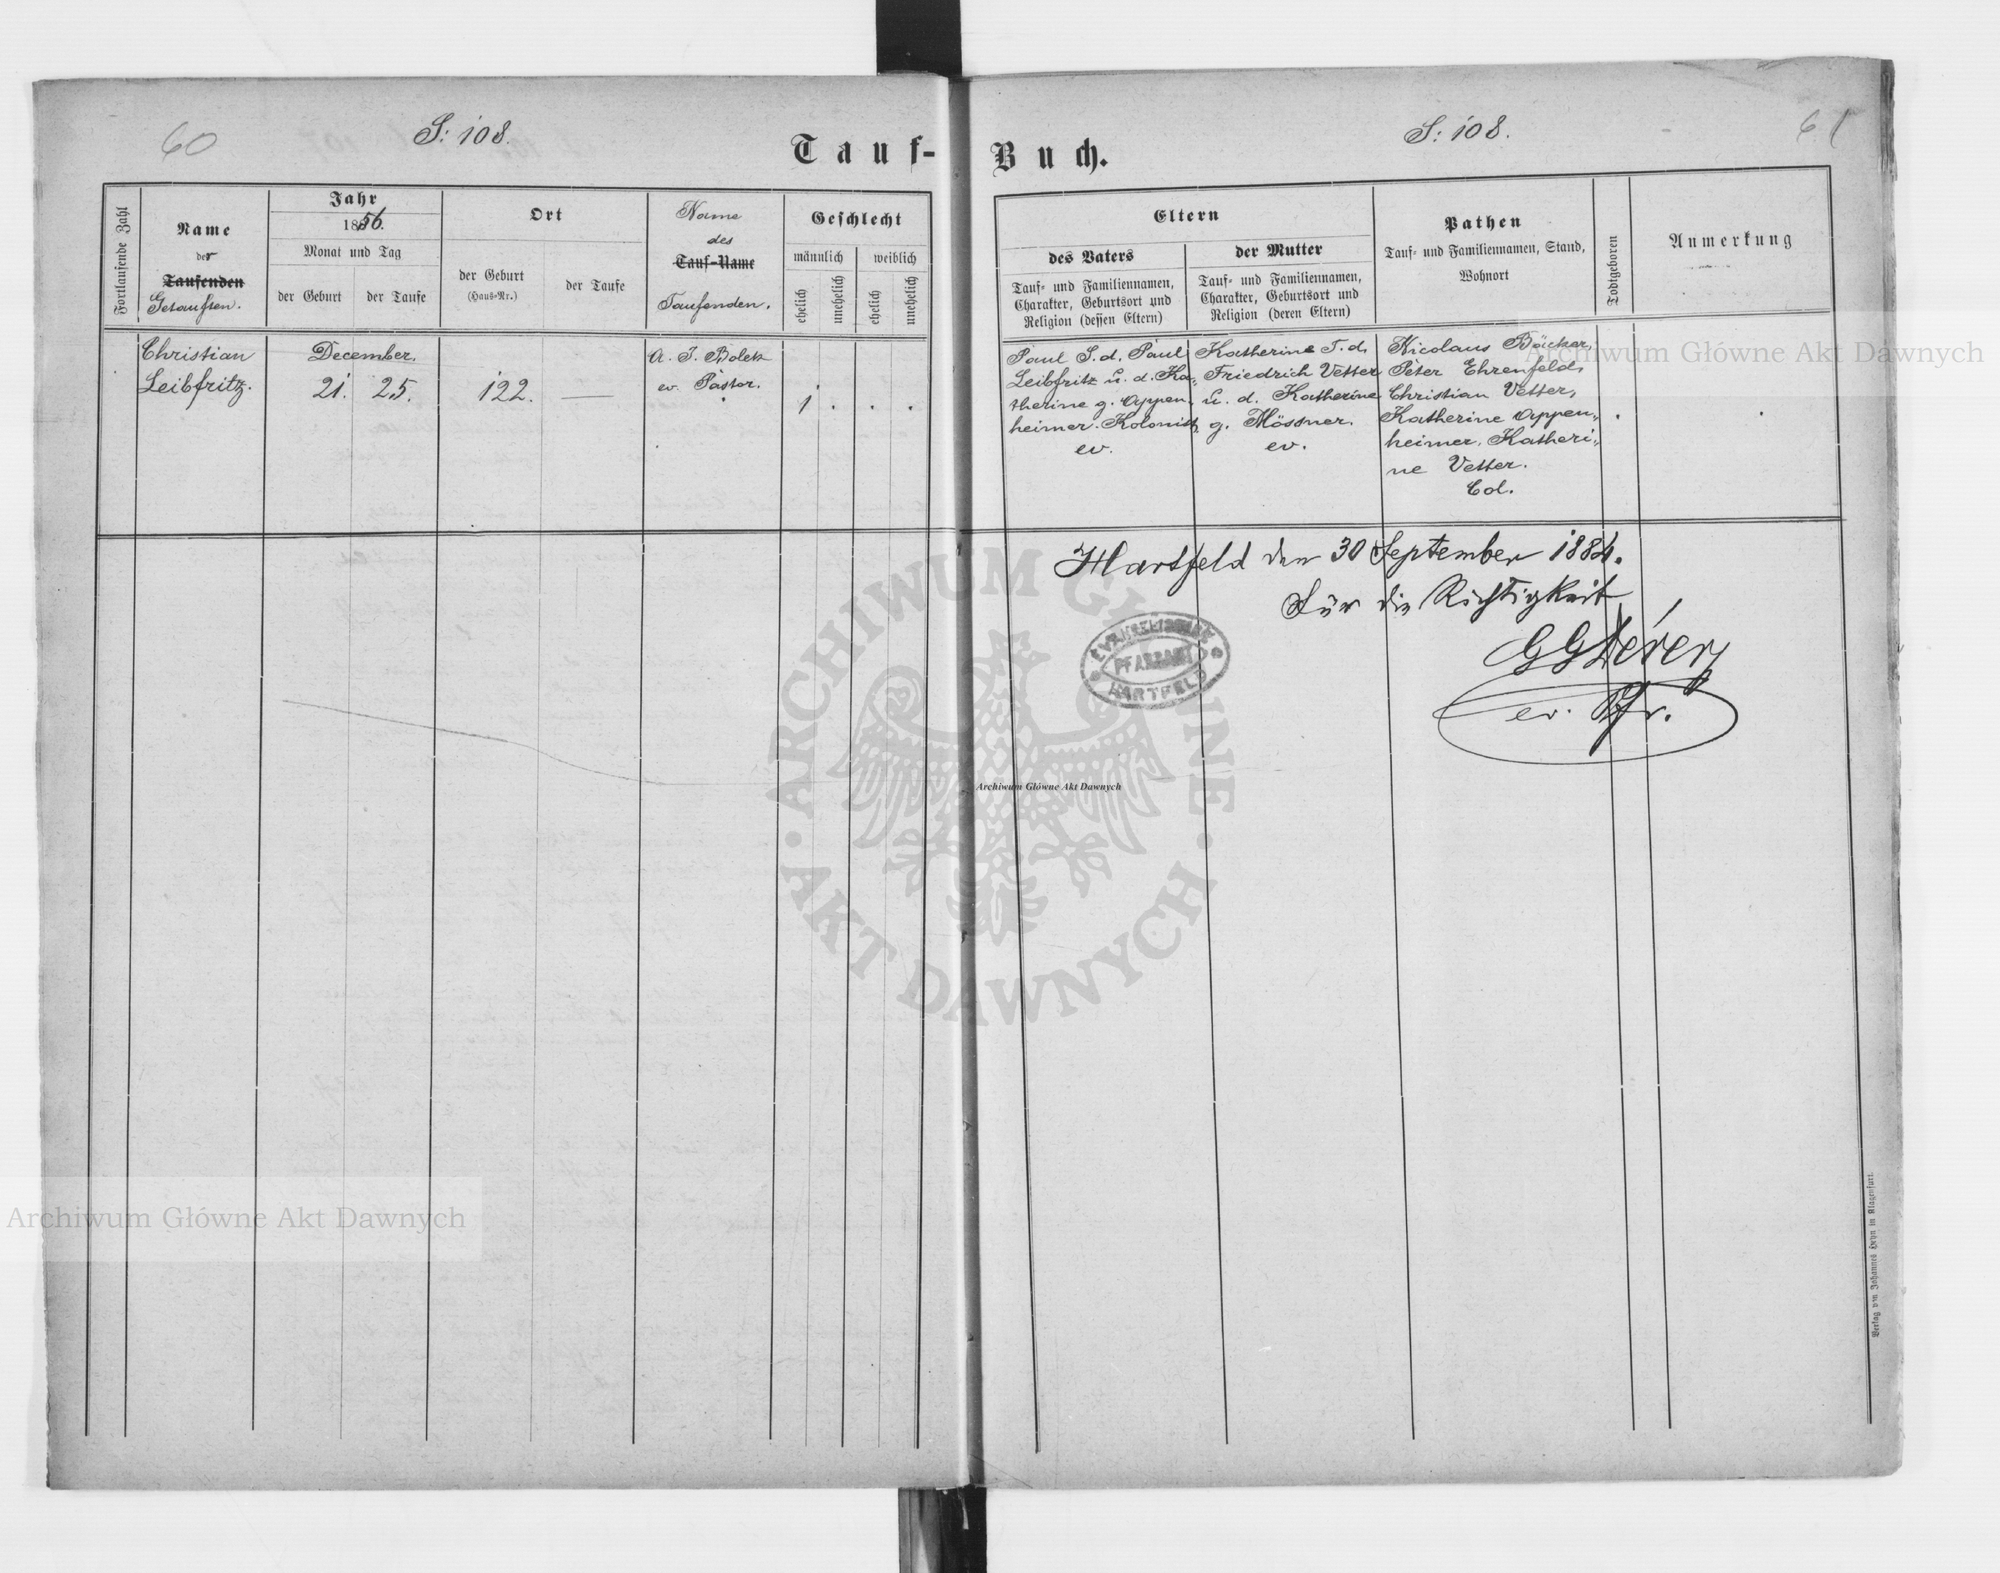 60
S: 108.
Tauf-
Buch.
S: 108.
61
Fortlaufende Zahl
Name
der
Taufenden
Getauften.
Jahr
1856.
Monat und Tag
der Geburt
der Taufe
Ort
der Geburt
(Haus-Nr.)
der Taufe
Name
des
Tauf-Name
Taufenden.
Geschlecht
männlich
weiblich
ehelich
unehelich
ehelich
unehelich
Eltern
des Vaters
Tauf- und Familiennamen,
Charakter, Geburtsort und
Religion (dessen Eltern)
der Mutter
Tauf- und Familiennamen,
Charakter, Geburtsort und
Religion (deren Eltern)
Pathen
Tauf- und Familiennamen, Stand,
Wohnort
Todtgeboren
Anmerkung
Christian
Leibfritz.
December.
21. 25.
122.
A. J. Bolek
ev. Pastor.
1
Paul S. d. Paul
Leibfritz u. d. Ka-
therine g. Oppen-
heimer. Kolonist,
ev.
Katherine T. d.
Friedrich Vetter
u. d. Katherine
g. Mössner.
ev.
Nicolaus Bäcker,
Peter Ehrenfeld,
Christian Vetter,
Katherine Oppen-
heimer, Katheri-
ne Vetter.
Col.
Hartfeld den 30 September 1884.
Für die Richtigkeit
ev. Pfr.
EVANGELISCHES
PFARRAMT
HARTFELD
Archiwum Główne Akt Dawnych
ARCHIWUM GŁÓWNE
AKT DAWNYCH
Archiwum Główne Akt Dawnych
Archiwum Główne Akt Dawnych
Verlag von Johannes Heyn in Klagenfurt.